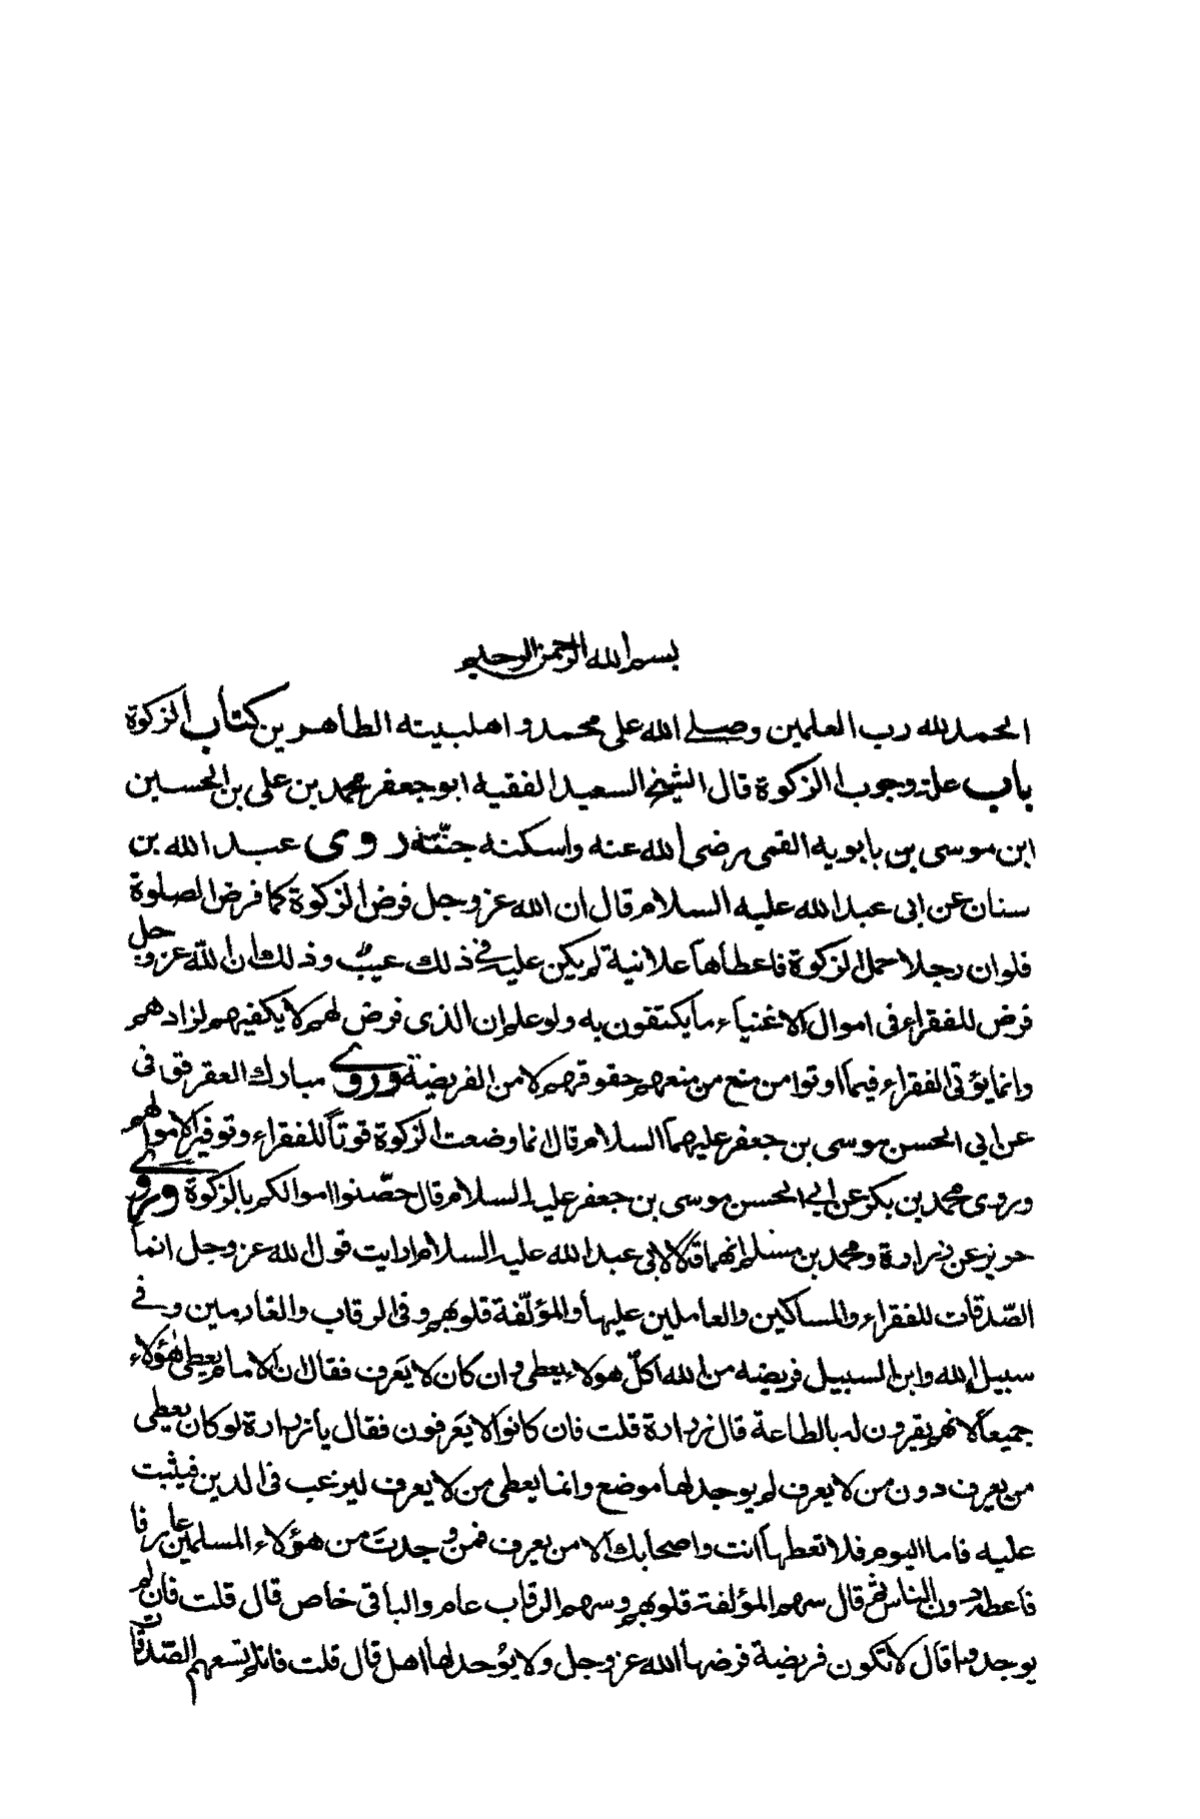 بسم الله الرحمن الرحيم
الحمد لله رب العلمين وصلى الله على محمد و اهلبيته الطاهرين كتاب الزكوة
باب علة وجوب الزكوة قال الشيخ السعيد الفقيه ابو جعفر محمد بن على بن الحسين
ابن موسى بن بابويه القمى رضى الله عنه واسكنه جنّته روى عبد الله بن
سنان عن ابى عبد الله عليه السلام قال ان الله عز وجل فرض الزكوة كما فرض الصلوة
فلو ان رجلا حمل الزكوة فاعطاها علانية لم يكن عليه في ذلك عيب وذلك ان الله عز وجل
فرض للفقراء فى اموال الاغنياء ما يكتفون به ولو علم ان الذى فرض لهم لا يكفيهم لزادهم
وانما يؤتى الفقراء فيما اوتوا من منع من منعهم حقوقهم لا من الفريضة وروى مبارك العقرقوقى
عن ابى الحسن موسى بن جعفر عليهما السلام قال انما وضعت الزكوة قوتاً للفقراء وتوفير الاموالهم
وروى محمد بن بكر عن ابي الحسن موسى بن جعفر عليه السلام قال حصّنوا اموالكم بالزكوة وروى
حريز عن زرارة ومحمد بن مسلم انهما قالا لابى عبد الله عليه السلام ارايت قول الله عز وجل انما
الصّدقات للفقراء والمساكين والعاملين عليها والمؤلّفة قلوبهم وفى الرقاب والغارمين وفي
سبيل الله وابن السبيل فريضه من الله اكلّ هولاء يعطى و ان كان لا يَعرف فقال ان الامام يعطى هؤلاء
جميعاً لانهم يقرون له بالطاعة قال زرارة قلت فان كانوا لا يَعرفون فقال يا زرارة لو كان يعطى
من يعرف دون من لا يعرف لم يوجد لها موضع وانما يعطى من لا يعرف ليرغب فى الدين فيثبت
عليه فاما اليوم فلا تعطها انت واصحابك الا من يعرف فمن وجدتَ من هؤلاء المسلمين عارفا
فاعطه دون الناس ثم قال سهم المؤلفة قلوبهم وسهم الرقاب عام والباقى خاص قال قلت فان لم
يوجدوا قال لا تكون فريضة فرضها الله عز وجل ولا يوُجد لها اهل قال قلت فان لم تسعهم الصّدقات